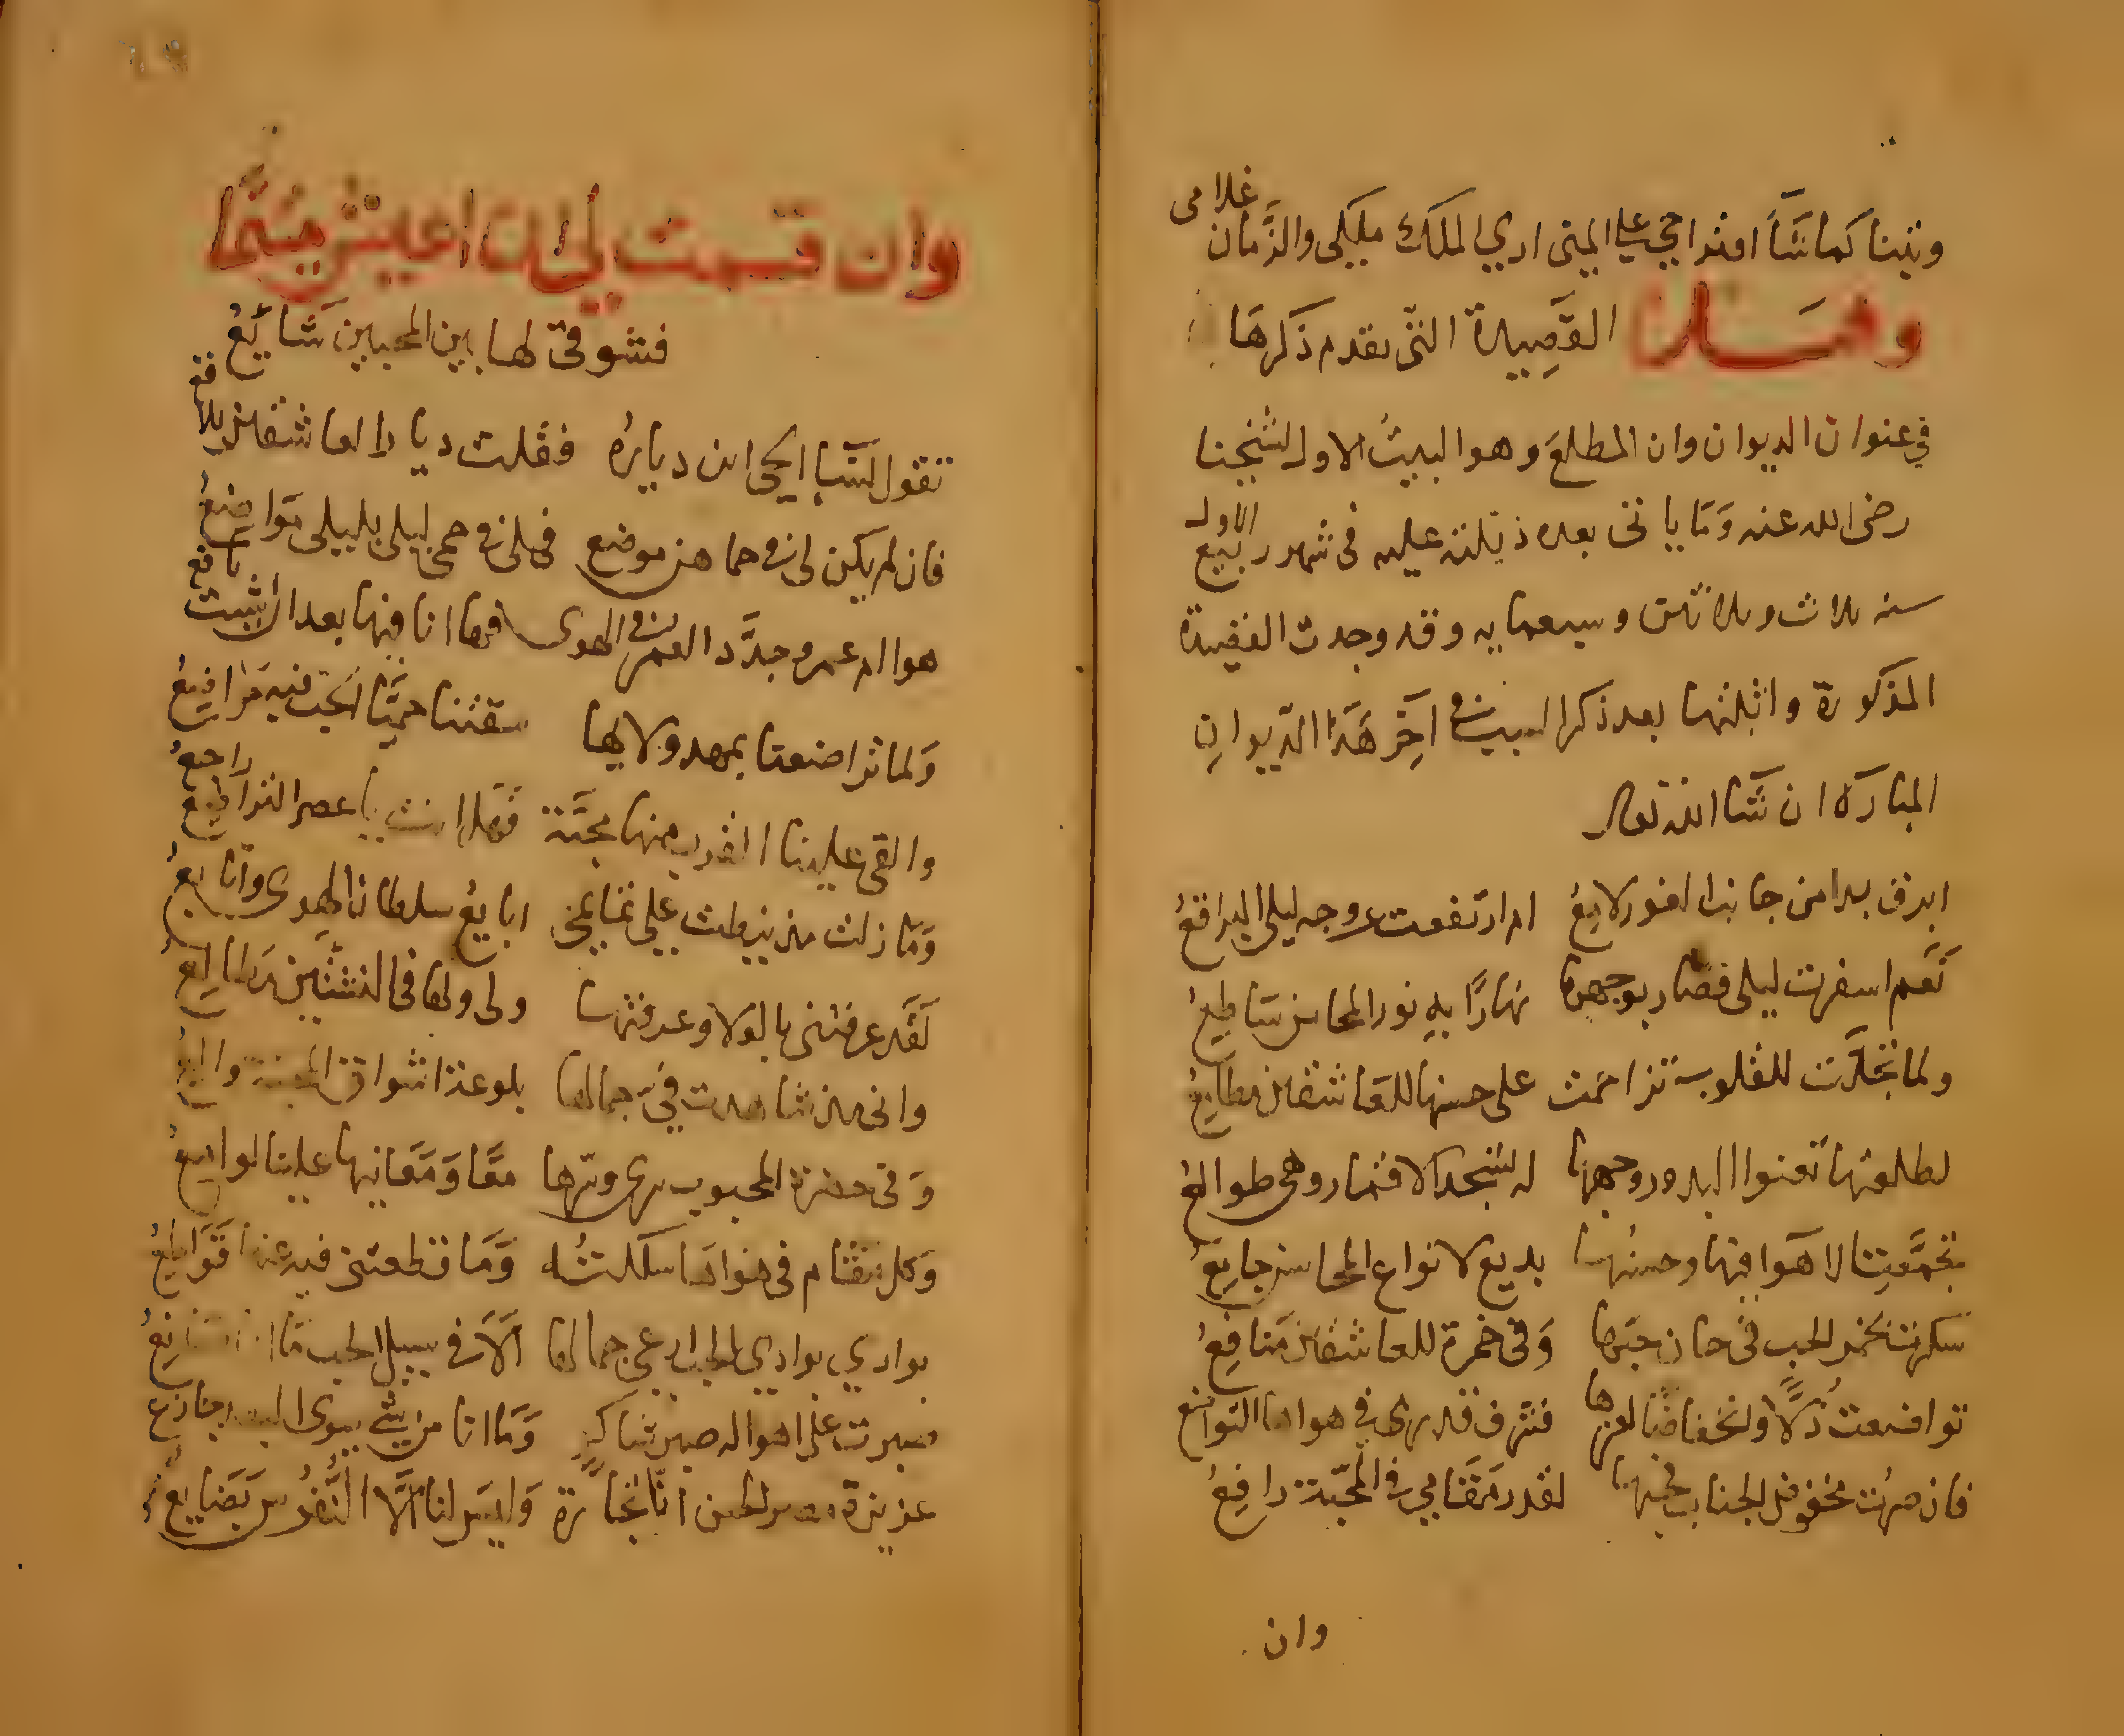 وتهنا كما شاء افتراحي على المنى اري الملك ملكي والزمان غلامي
وهذه القصيدة التي تقدم ذكرها
في عنوان الديوان وان المطلع وهو البيت الاول لشيخنا
رضي الله عنه وما ياتي بعده ذيلته عليه في شهر ربيع الاول
سنه ثلاث وثلاثين وسبعمايه وقد وجدت القصيدة
المذكورة واثبتها بعد ذكر البيت في آخر هذا الديوان
المبارك ان شا الله تعالى
ابرق بدا من جانب الغور لامع ام ارتفعت عن وجه ليلى البراقع
نعم اسفرت ليلى فصار بوجهها نهارًا به نور المحاسن ساطع
ولما تجلّت للقلوب تزاحمت على حسنها للعاشقين مطامع
لطلعتها تعنوا البدور ووجهها له تسجد الاقمار وهي طوالع
تجمّعت الاهوا فيها وحسنها بديع لانواع المحاسن جامع
سكرت بخمر الحب في حان حبها وفي خمرة للعاشقين منافع
تواضعت ذلًّا وانخفاضًا لعزها فشرف قدري في هواها التواضع
فان صرت مخفوض الجناب فحبها لقدر مقامي في المحبّة رافع
وان
وان قسمت لي ان اعيش متيمًا
فشوقي لها بين المحبين شائع
تقول نسا الحي اين دياره فقلت ديار العاشقين بلاقع
فان لم يكن لي في حماهن موضع فلي في حمى ليلى بليلى مواضع
هوى ام عمرو جدّد العمر في الهوى فها انا فيها بعد ان شبت يافع
ولما تراضعنا بمهد ولايها سقتنا حميّا الحب فيه مراضع
والقى علينا القرب منها محبّة فهل انت يا عصر التراضع راجع
وما زلت مذ نيطت علي تمايمي ابايع سلطان الهوى واتابع
لقد عرفتني بالولا وعرفتها ولي ولها في النشأتين مطالع
واني مذ شاهدت فيّ جمالها بلوعة اشواق المحبة والع
وفي حضرة المحبوب سري وسرها معًا ومعانيها علينا لوامع
وكل مقام في هواها سلكته وما قطعتني فيه عنها قواطع
بوادي بوادي الحب ارعى جمالها الا في سبيل الحب ما انا صانع
صبرت على اهواله صبر شاكر وما انا من شي سوى البعد جازع
عزيزة مصر الحسن انّا تجارة وليس لنا الّا النفوس بضايع